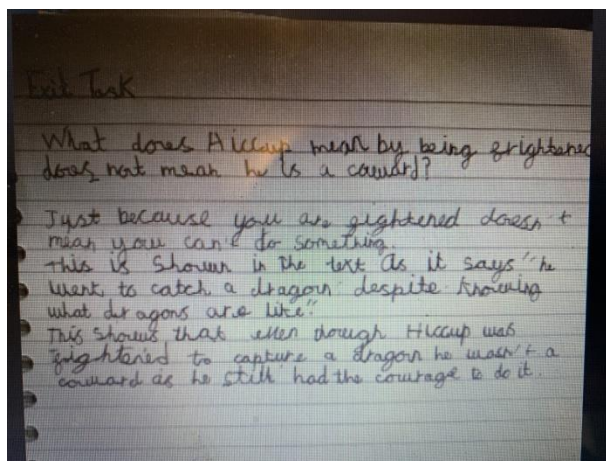 Exit Task
What does Hiccup mean by being frightened
does not mean he is a coward?
Just because you are fightened doesn't
mean you can't do something.
This is shown in the text as it says "he
went to catch a dragon despite knowing
what dragons are like."
This shows that even though Hiccup was
frightened to capture a dragon he wasn't a
couward as he still had the courage to do it.